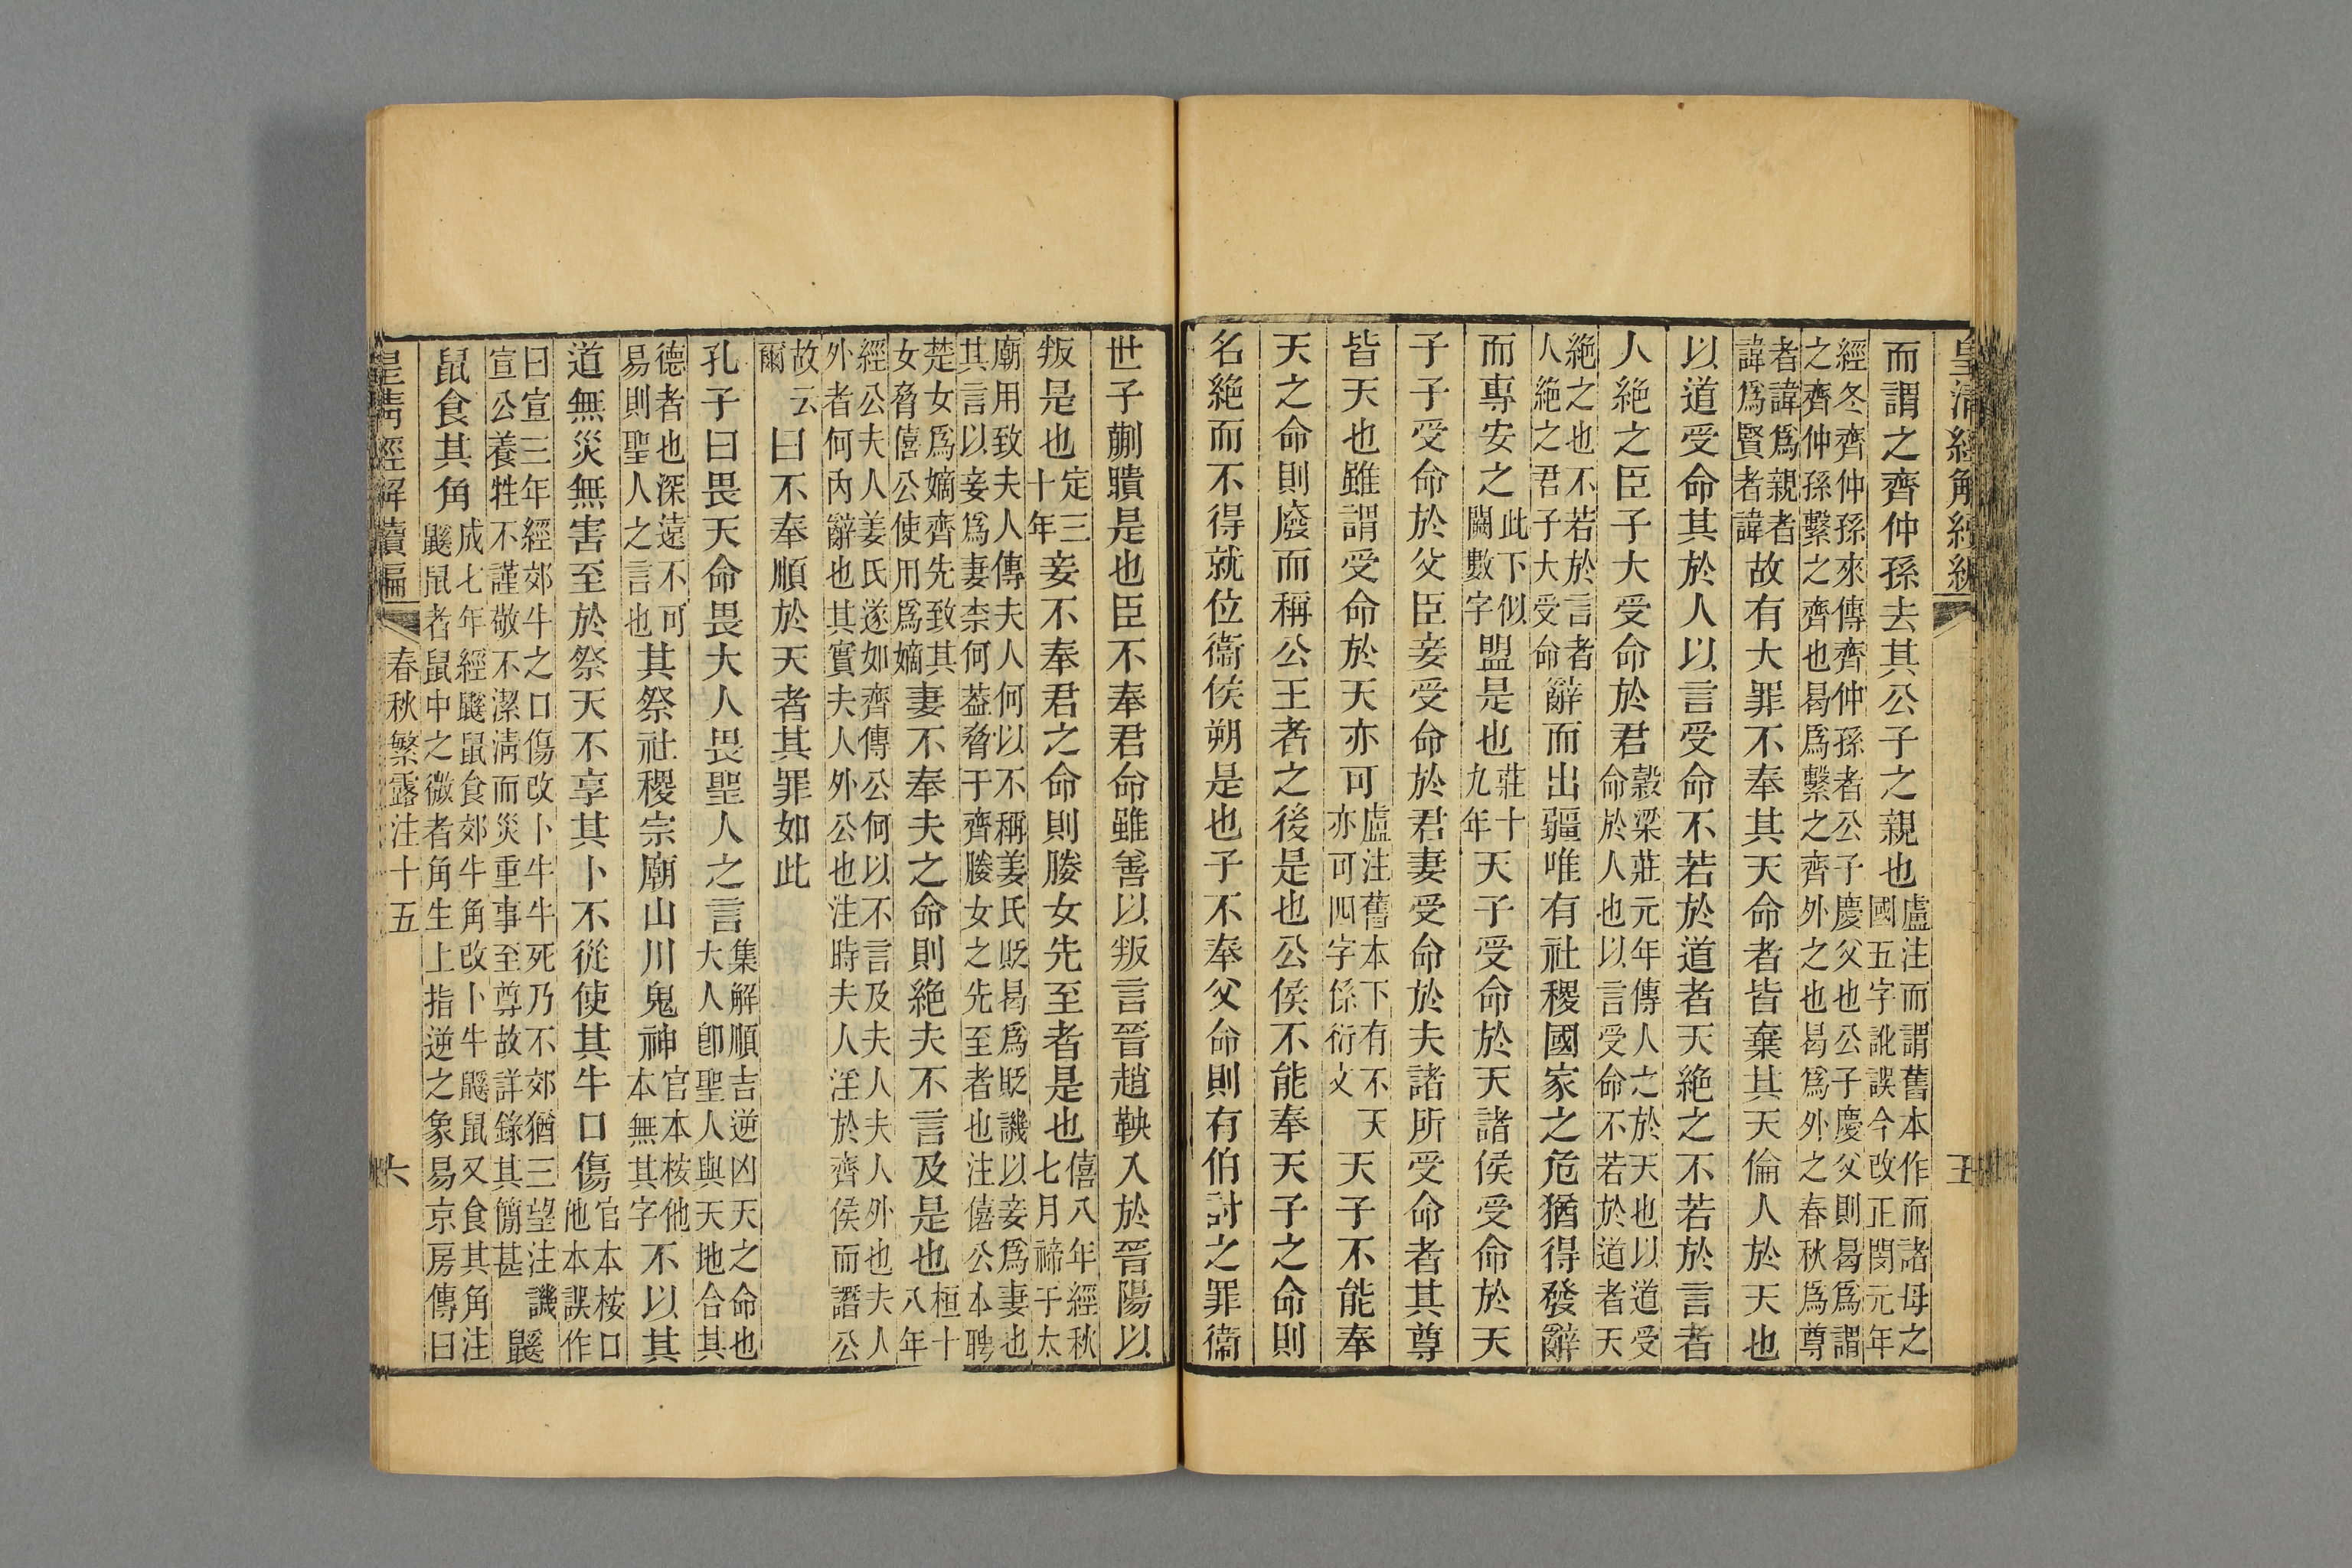 皇清經解續編
五
而謂之齊仲孫去其公子之親也盧注而謂舊本作而諸母之國五字訛誤今改正閔元年
經冬齊仲孫來傳齊仲孫者公子慶父也公子慶父則曷爲謂之齊仲孫繫之齊也曷爲繫之齊外之也曷爲外之春秋爲尊
者諱爲親者諱爲賢者諱故有大罪不奉其天命者皆棄其天倫人於天也
以道受命其於人以言受命不若於道者天絶之不若於言者
人絶之臣子大受命於君穀梁莊元年傳人之於天也以道受命於人也以言受命不若於道者天
絶之也不若於言者人絶之君子大受命辭而出疆唯有社稷國家之危猶得發辭
而專安之此下似闕數字盟是也莊十九年天子受命於天諸侯受命於天
子子受命於父臣妾受命於君妻受命於夫諸所受命者其尊
皆天也雖謂受命於天亦可盧注舊本下有不天亦可四字係衍文天子不能奉
天之命則廢而稱公王者之後是也公侯不能奉天子之命則
名絶而不得就位衞侯朔是也子不奉父命則有伯討之罪衞
世子蒯聵是也臣不奉君命雖善以叛言晉趙鞅入於晉陽以
叛是也定三十年妾不奉君之命則媵女先至者是也僖八年經秋七月禘于太
廟用致夫人傳夫人何以不稱姜氏貶曷爲貶譏以妾爲妻也其言以妾爲妻柰何葢脅于齊媵女之先至者也注僖公本聘
楚女爲嫡齊先致其女脅僖公使用爲嫡妻不奉夫之命則絶夫不言及是也桓十八年
經公夫人姜氏遂如齊傳公何以不言及夫人夫人外也夫人外者何內辭也其實夫人外公也注時夫人淫於齊侯而譖公
故云爾曰不奉順於天者其罪如此
孔子曰畏天命畏大人畏聖人之言集解順吉逆凶天之命也大人卽聖人與天地合其
德者也深遠不可易則聖人之言也其祭社稷宗廟山川鬼神官本桉他本無其字不以其
道無災無害至於祭天不享其卜不從使其牛口傷官本桉口他本誤作
曰宣三年經郊牛之口傷改卜牛牛死乃不郊猶三望注譏宣公養牲不謹敬不潔淸而災重事至尊故詳錄其簡甚鼷
鼠食其角成七年經鼷鼠食郊牛角改卜牛鼷鼠又食其角注鼷鼠者鼠中之微者角生上指逆之象易京房傳曰
皇淸經解續編
春秋繁露注十五
六